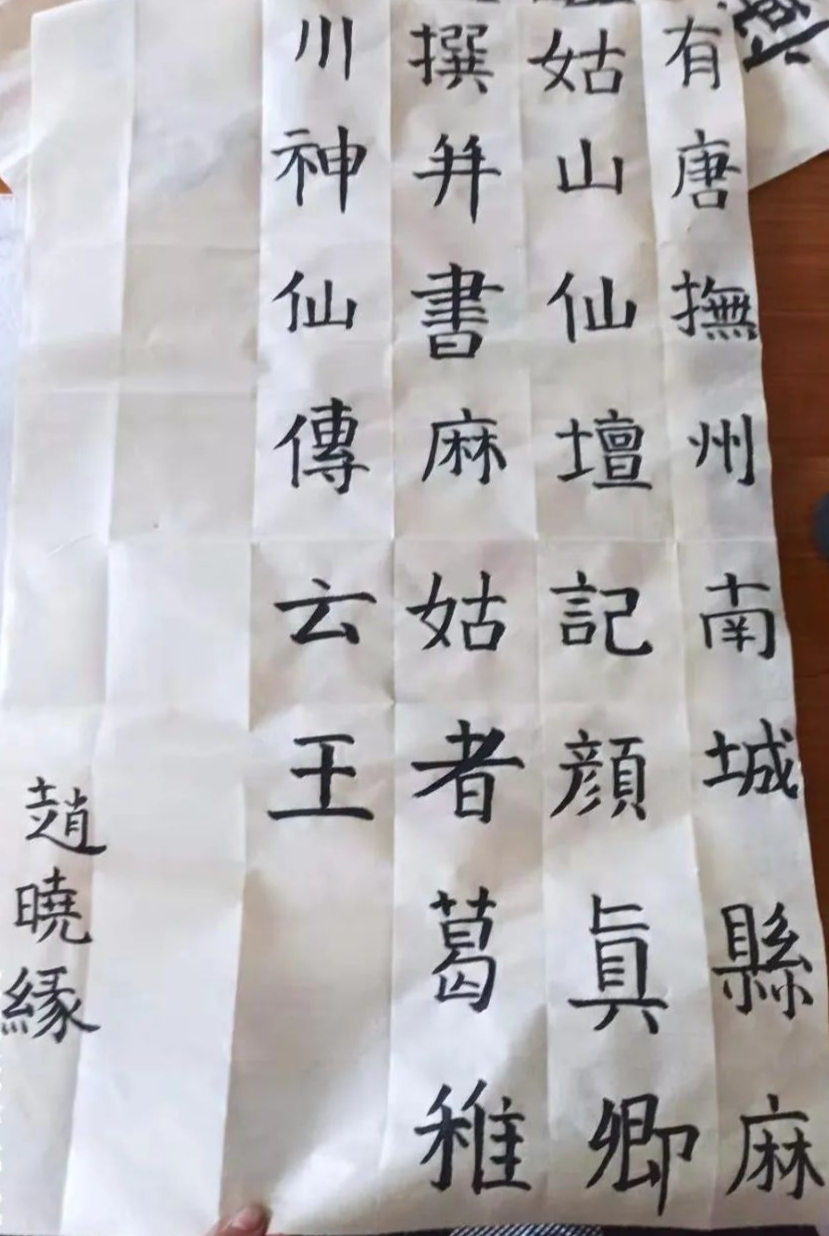 有唐撫州南城縣麻
姑山仙壇記顔眞卿
撰并書麻姑者葛稚
川神仙傳云王
趙曉緣